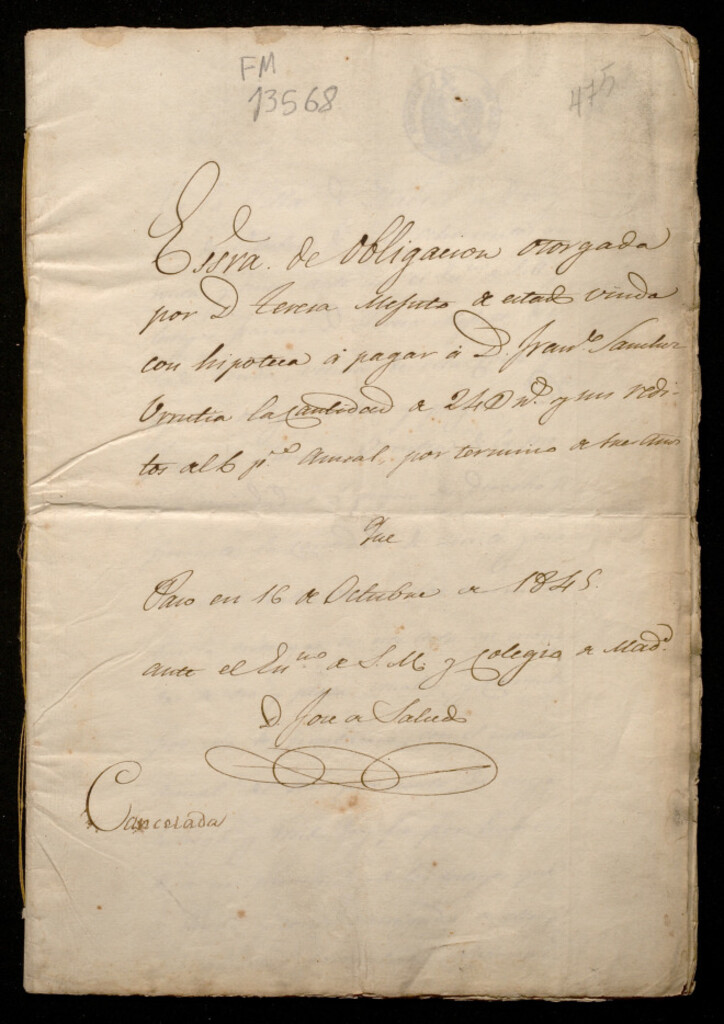 FM
13568
475
Essra. de Obligacion otorgada
por D Teresa Mesuto de estado viuda
con hipoteca á pagar á D. Franco. Sanchez
Urrutia la Cantidad de 24 y sus redi-
tos al 6 p.o Anual por termino de tres años
Que
Paso en 16 de Octubre de 1845.
ante el Enno de S. M. y Colegio de Madd.
D. Jose de Salcedo
Cancelada